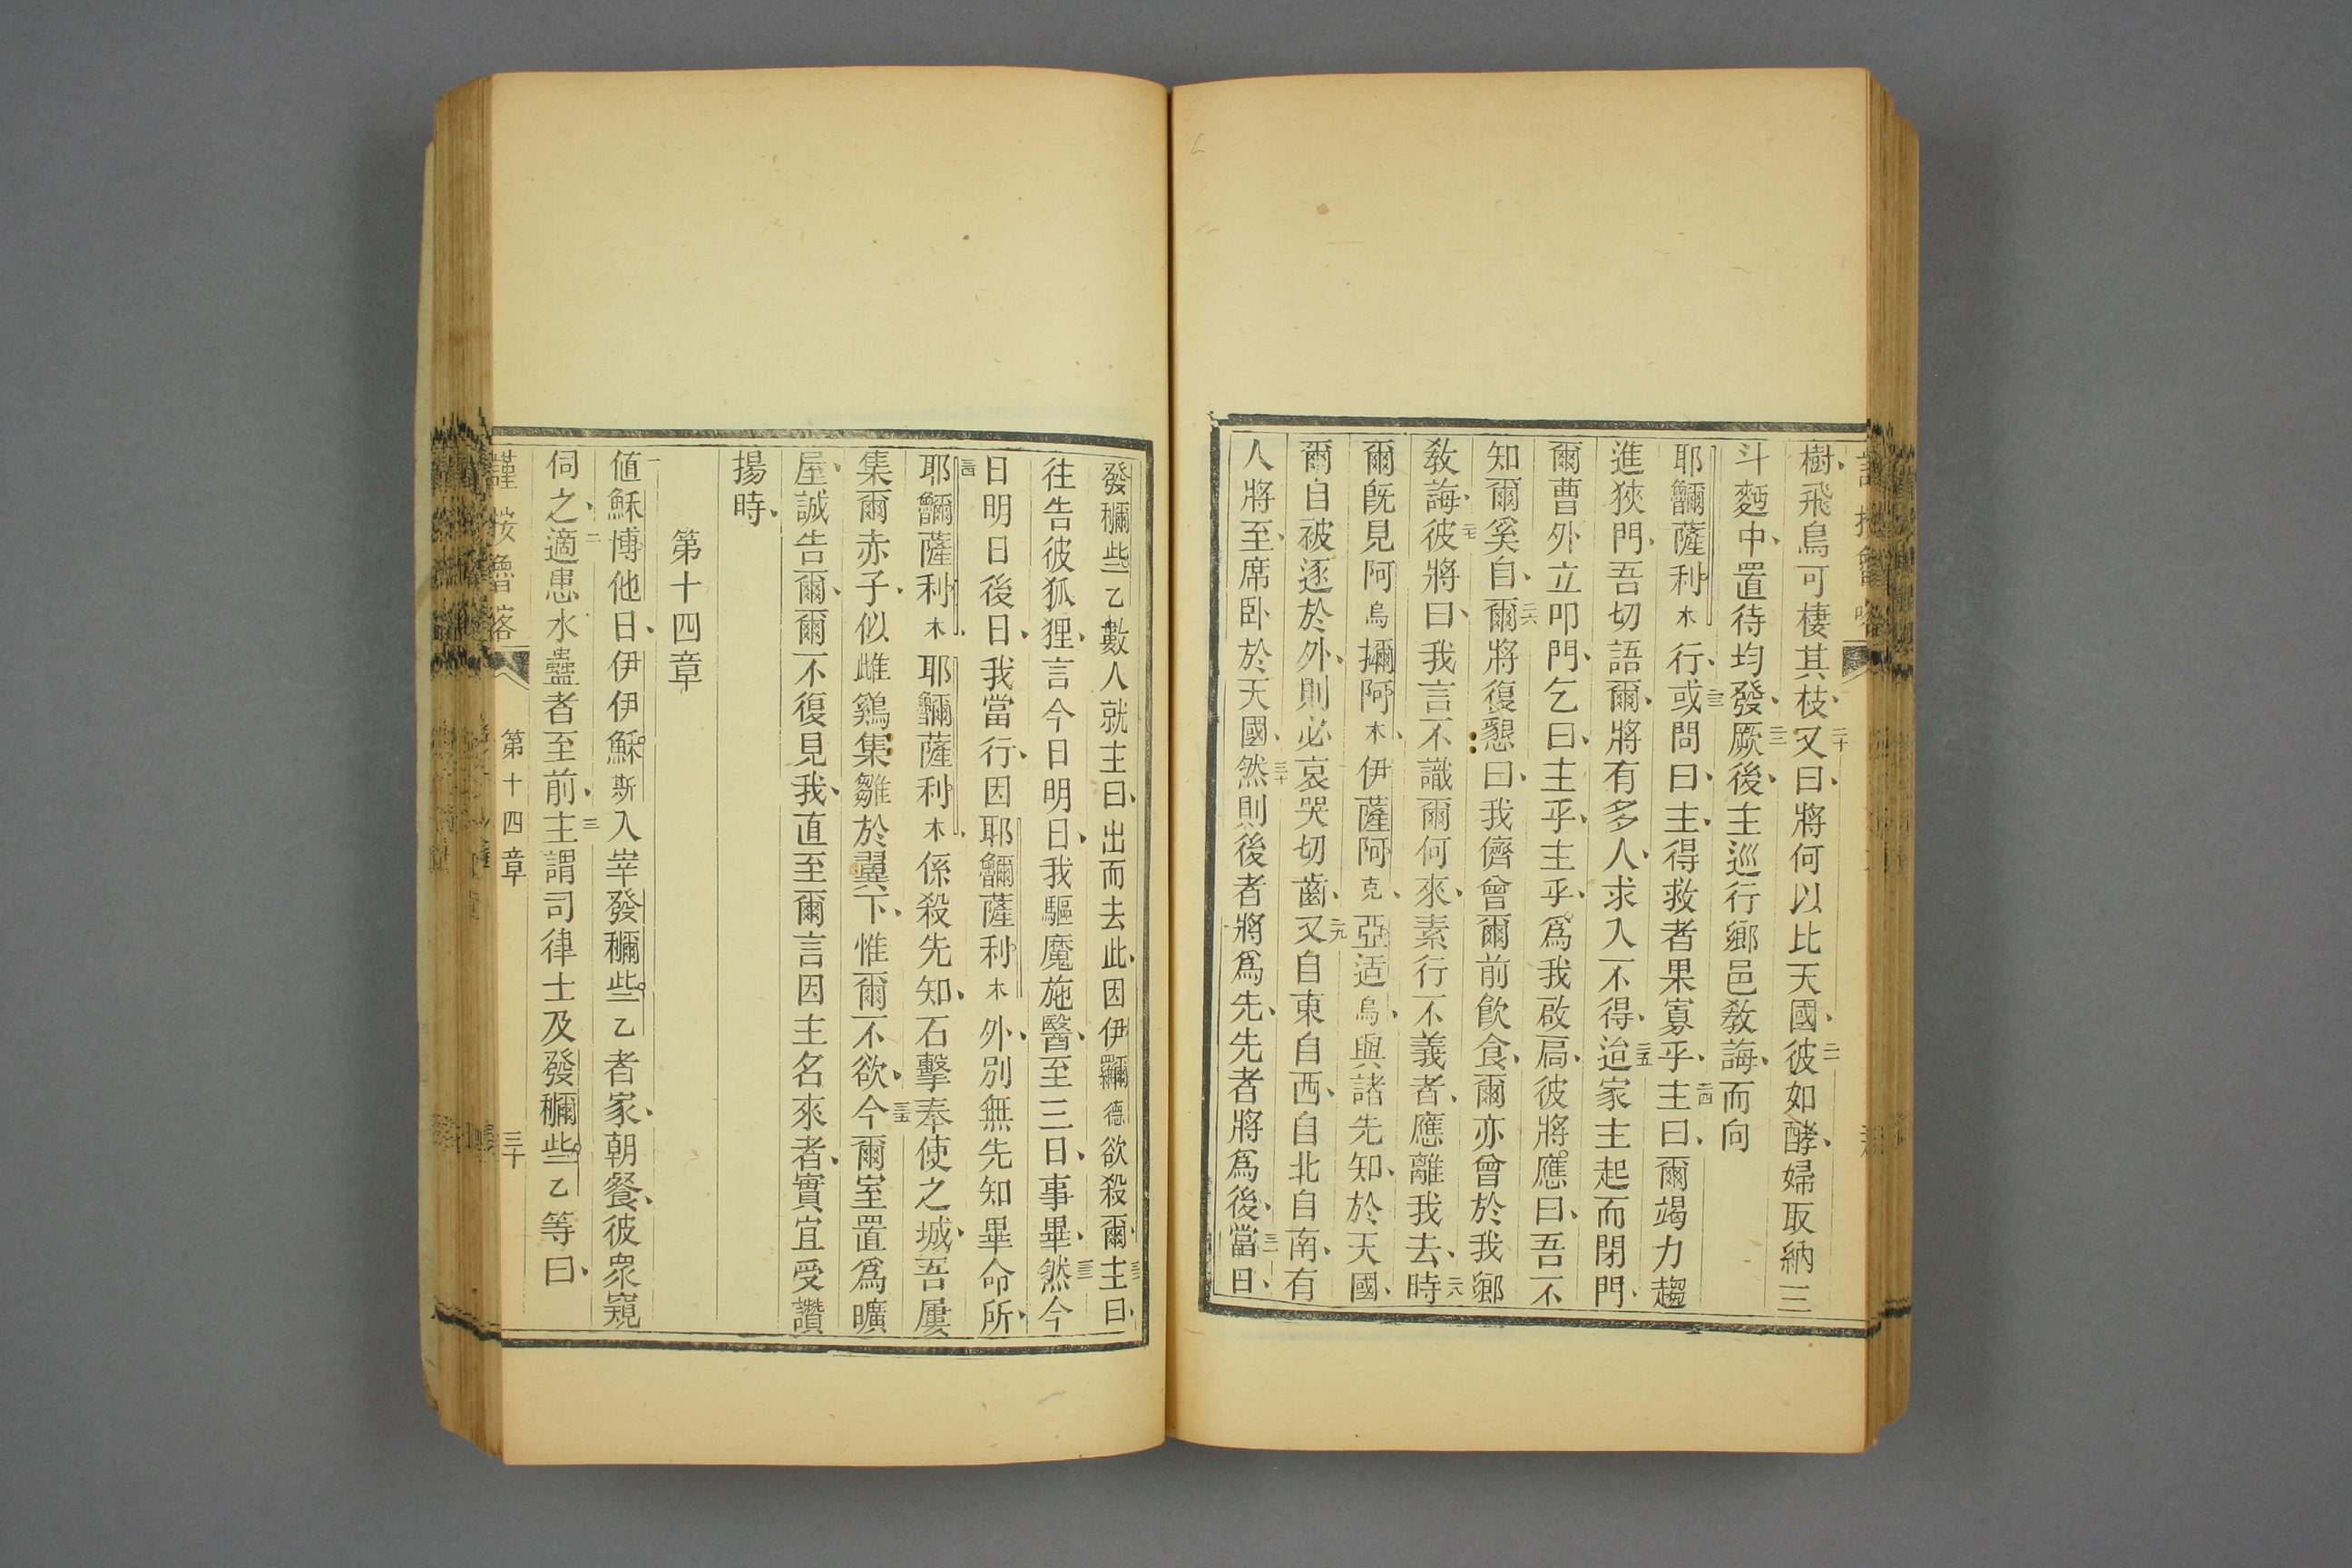 樹、飛鳥可棲其枝、二十又曰、將何以比天國、二一彼如酵、婦取納三
斗麫中、置待均發、二二厥後、主巡行鄉邑教誨、而向
耶𬹃薩利木行、二三或問曰、主、得救者果寡乎、二四主曰、爾竭力趨
進狹門、吾切語爾、將有多人、求入不得、二五迨家主起而閉門、
爾曹外立叩門、乞曰、主乎、主乎、爲我啟扃、彼將應曰、吾不
知爾奚自、二六爾將復懇曰、我儕曾爾前飲食、爾亦曾於我鄉
教誨、二七彼將曰、我言不識爾何來、素行不義者、應離我去、二八時
爾既見阿烏擟阿木、伊薩阿克、亞适烏、與諸先知、於天國、
爾自被逐於外、則必哀哭切齒、二九又自東自西、自北自南、有
人將至、席卧於天國、三十然則後者將爲先、先者將爲後、三一當日、
發穪些乙數人就主曰、出而去此、因伊𦉪德欲殺爾、三二主曰、
往告彼狐狸、言今日明日、我驅魔施醫、至三日、事畢、三三然今
日明日後日、我當行、因耶𬹃薩利木外、別無先知畢命所、
三四耶𬹃薩利木、耶𬹃薩利木、係殺先知、石擊奉使之城、吾屢
集爾赤子、似雌鷄集雛於翼下、惟爾不欲、三五今爾室置爲曠
屋、誠告爾、爾不復見我、直至爾言因主名來者、實宜受讚
揚時、
第十四章
一値穌博他日、伊伊穌斯入宰發穪些乙者家、朝餐、彼衆窺
伺之、二適患水蠱者至前、三主謂司律士及發穪些乙等曰、
謹按魯喀
第十四章
三十